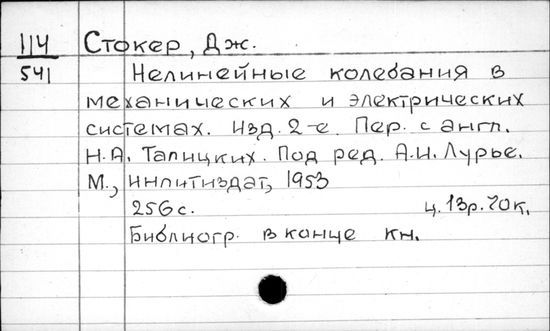 114 Стокер, Дж.
541 Нелинейные колебания в
механических и электрических
системах. Изд. 2-е. Пер. с англ.
Н.А. Талицких. Под ред. А.И. Лурье.
М., Инлитиздат, 1953
256с. ц. 13р. 70к.
Библиогр. в конце кн.